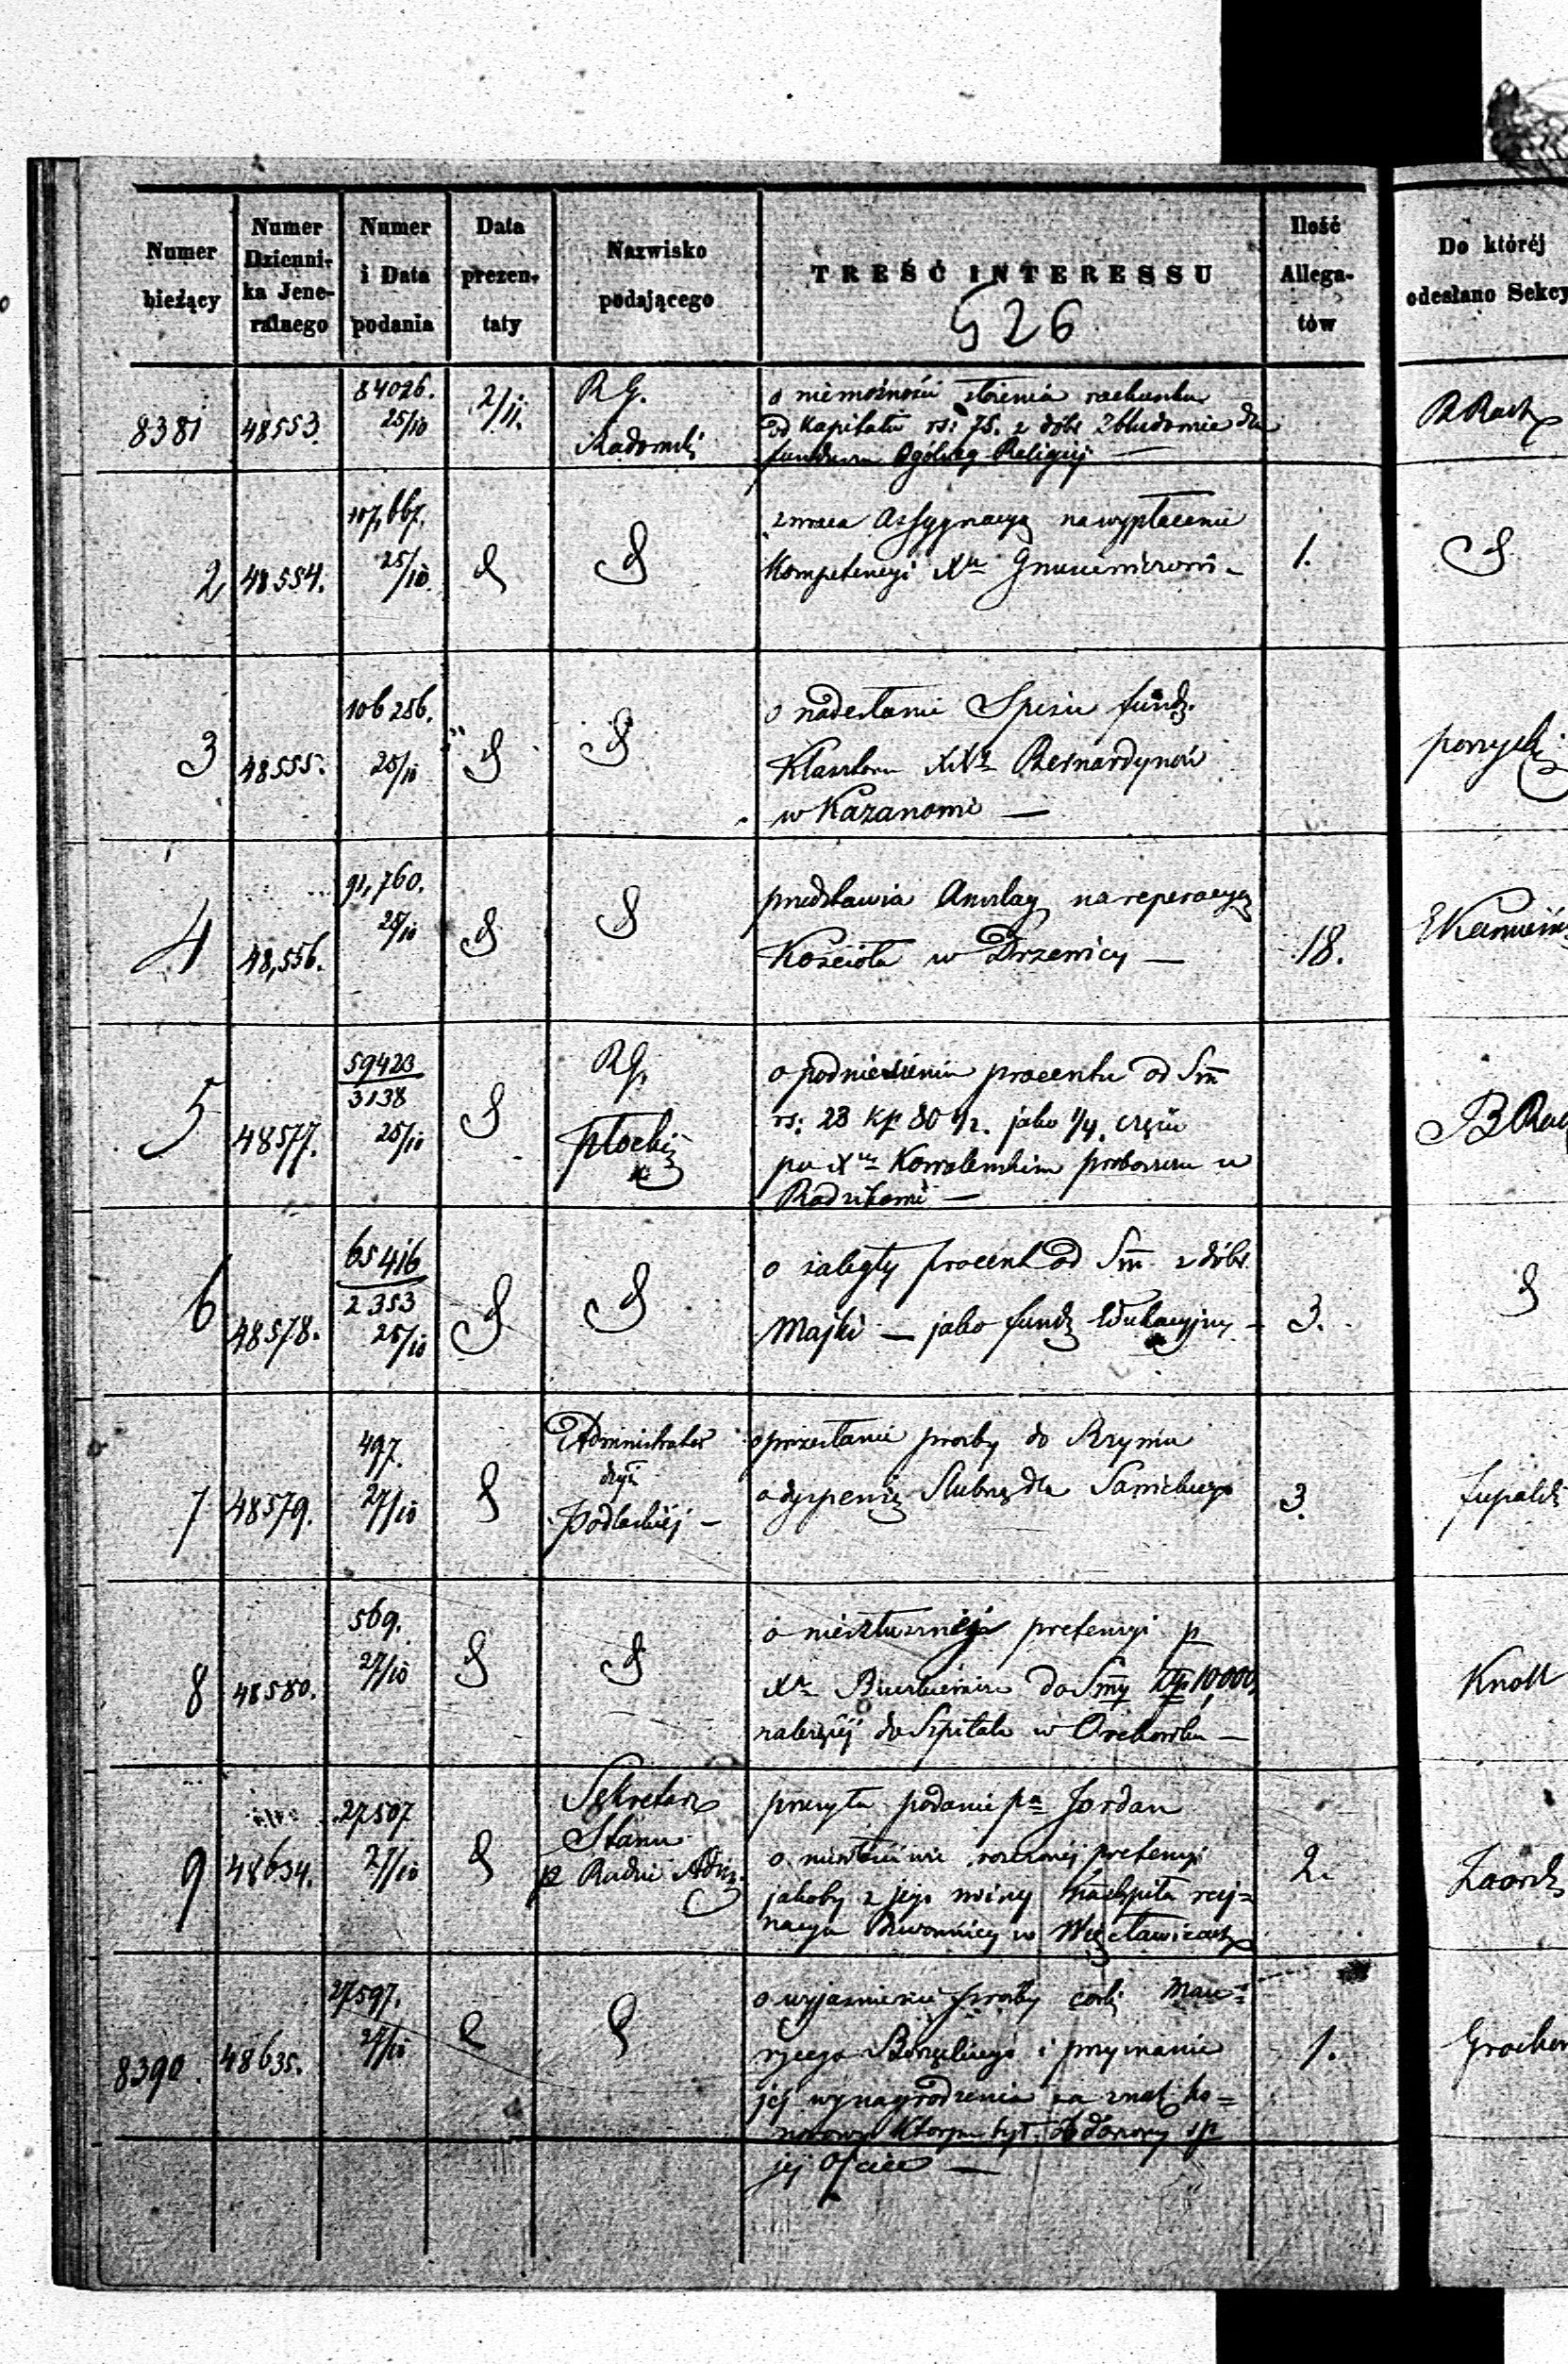 Numer bieżący | Numer Dzienni- ka Jene- ralnego | Numer i Data podania | Data prezen- taty | Nazwisko podającego | TREŚĆ INTERESSU | Ilość Allega- tów | Do któréj odesłano Sekcy
526
8381 | 48553. | 84026. 25/10 | 2/11. | R G. Radomski | o niemożności złożenia rachunku
od kapitału rs: 75. z dóbr dla
funduszu Ogólneg Religiij —
2 | 48554. | 107,667. 25/10. | zwraca Assygnacyą na wypłacenie | 1.
Kompetencyi Xu
3 | 48555. | 106256. 25/10 | o nadesłanie Spisu fund.
Klasztoru XXy Bernardynów
w Kazanowie —
4 | 48,556. | 91,760. 25/10 | przedstawia Anszlag na reperacyą | 18.
Kościoła w Drzewicy —
5 | 48577. | 59423 / 3138 25/10 | RG. Płocki | o podniesieniu procentu od Sm
rs: 23 kp 30 1/2. jako 1/4. części
po Xu Kowalewskim proboszczu w
6 | 48578. | 65416 / 2353 25/10 | o zaległy procent od Sm z dóbr
Majki — jako fundz Edukacyjny — | 3.
7 | 48579. | 497. 27/10 | Administrator dyec Podlaskiéj — | o przesłanie prośby do Rzymu
o dyspensę Slubną dla | 3.
8 | 48580. | 569. 27/10 | o niesłusznéj pretensyi p | Knoll
Xa do Smy Złp 10,000
należącéj do Szpitala w Orchówku —
9 | 48634. | 27507 27/10 | Sekretarz Stanu p Radzie Admin. | przesyła podanie pa Jordan
o niewłaściwie roszczonéj pretensyi | 2.
jakoby z jego winy nastąpiła ruj=
nacya Dzwonnicy w Więcławicach
8390. | 48635. | 27597. 27/10 | o wyjaśnienie prośby córki Mau=
rycego i przyznanie | 1.
jéj wynagrodzenia za znak ho=
norowy którym był ozdobiony
jéj Ojciec —